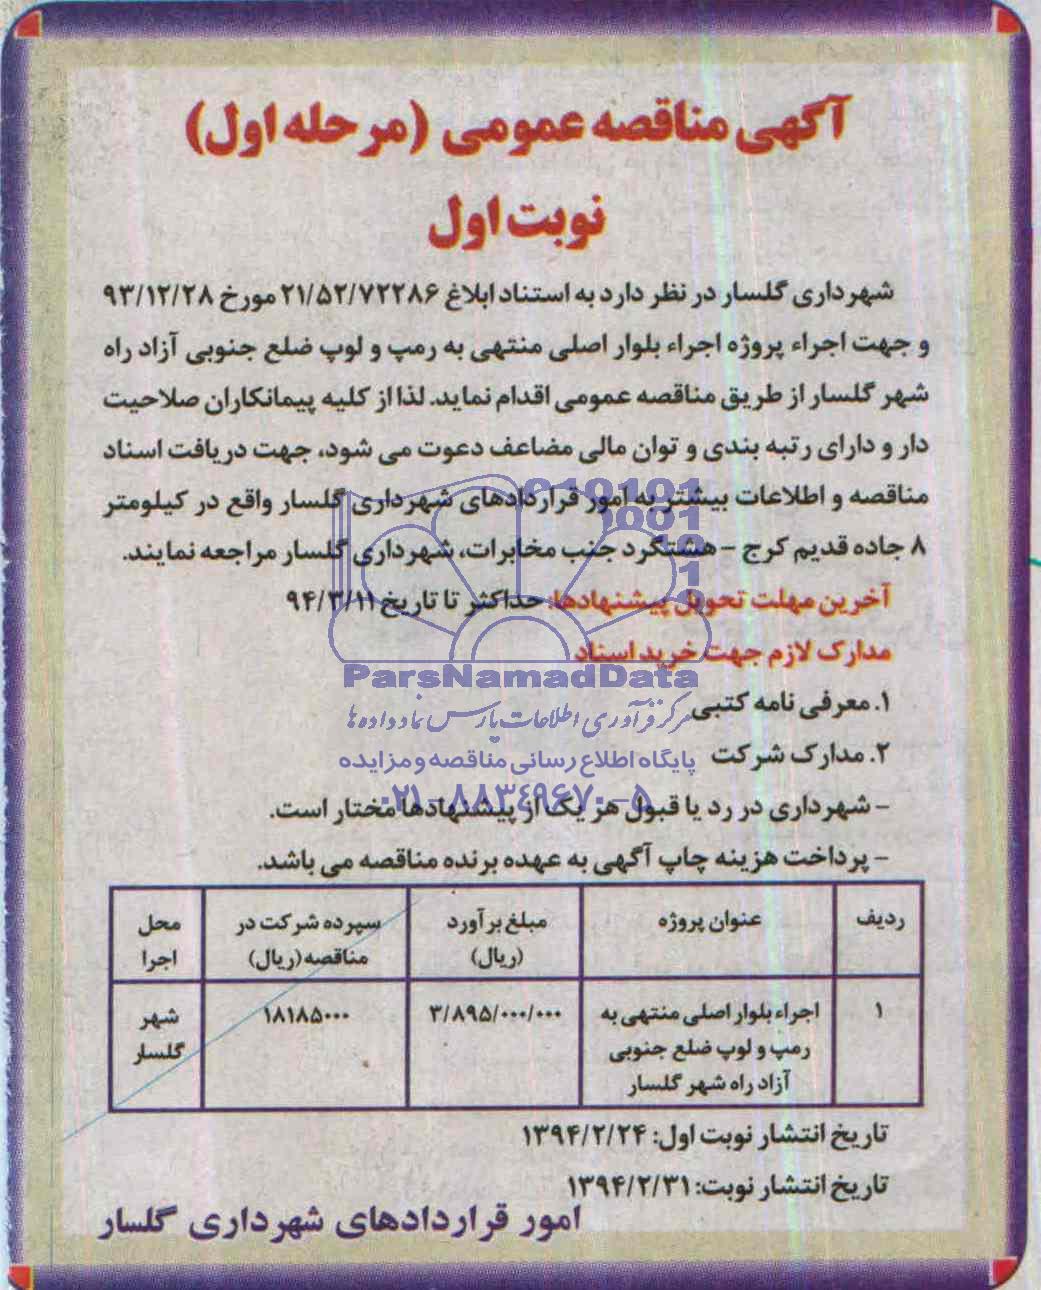 آگهی مناقصه عمومی (مرحله اول)
نوبت اول
شهرداری گلسار در نظر دارد به استناد ابلاغ ۲۱/۵۲/۷۲۲۸۶ مورخ ۹۳/۱۲/۲۸
و جهت اجراء پروژه اجراء بلوار اصلی منتهی به رمپ و لوپ ضلع جنوبی آزاد راه
شهر گلسار از طریق مناقصه عمومی اقدام نماید. لذا از کلیه پیمانکاران صلاحیت
دار و دارای رتبه بندی و توان مالی مضاعف دعوت می شود، جهت دریافت اسناد
مناقصه و اطلاعات بیشتر به امور قراردادهای شهرداری گلسار واقع در کیلومتر
۸ جاده قدیم کرج - هشتگرد جنب مخابرات، شهرداری گلسار مراجعه نمایند.
آخرین مهلت تحویل پیشنهادها: حداکثر تا تاریخ ۹۴/۳/۱۱
مدارک لازم جهت خرید اسناد
۱. معرفی نامه کتبی
۲. مدارک شرکت
- شهرداری در رد یا قبول هر یک از پیشنهادها مختار است.
- پرداخت هزینه چاپ آگهی به عهده برنده مناقصه می باشد.
ردیف عنوان پروژه مبلغ برآورد (ریال) سپرده شرکت در مناقصه (ریال) محل اجرا
۱ اجراء بلوار اصلی منتهی به رمپ و لوپ ضلع جنوبی آزاد راه شهر گلسار ۳/۸۹۵/۰۰۰/۰۰۰ ۱۸۱۸۵۰۰۰ شهر گلسار
تاریخ انتشار نوبت اول: ۱۳۹۴/۲/۲۴
تاریخ انتشار نوبت: ۱۳۹۴/۲/۳۱
امور قراردادهای شهرداری گلسار
010101
001
01
1
ParsNamadData
مرکز فرآوری اطلاعات پارس نماد داده ها
پایگاه اطلاع رسانی مناقصه و مزایده
۰۲۱-۸۸۳۴۹۶۷۰-۵